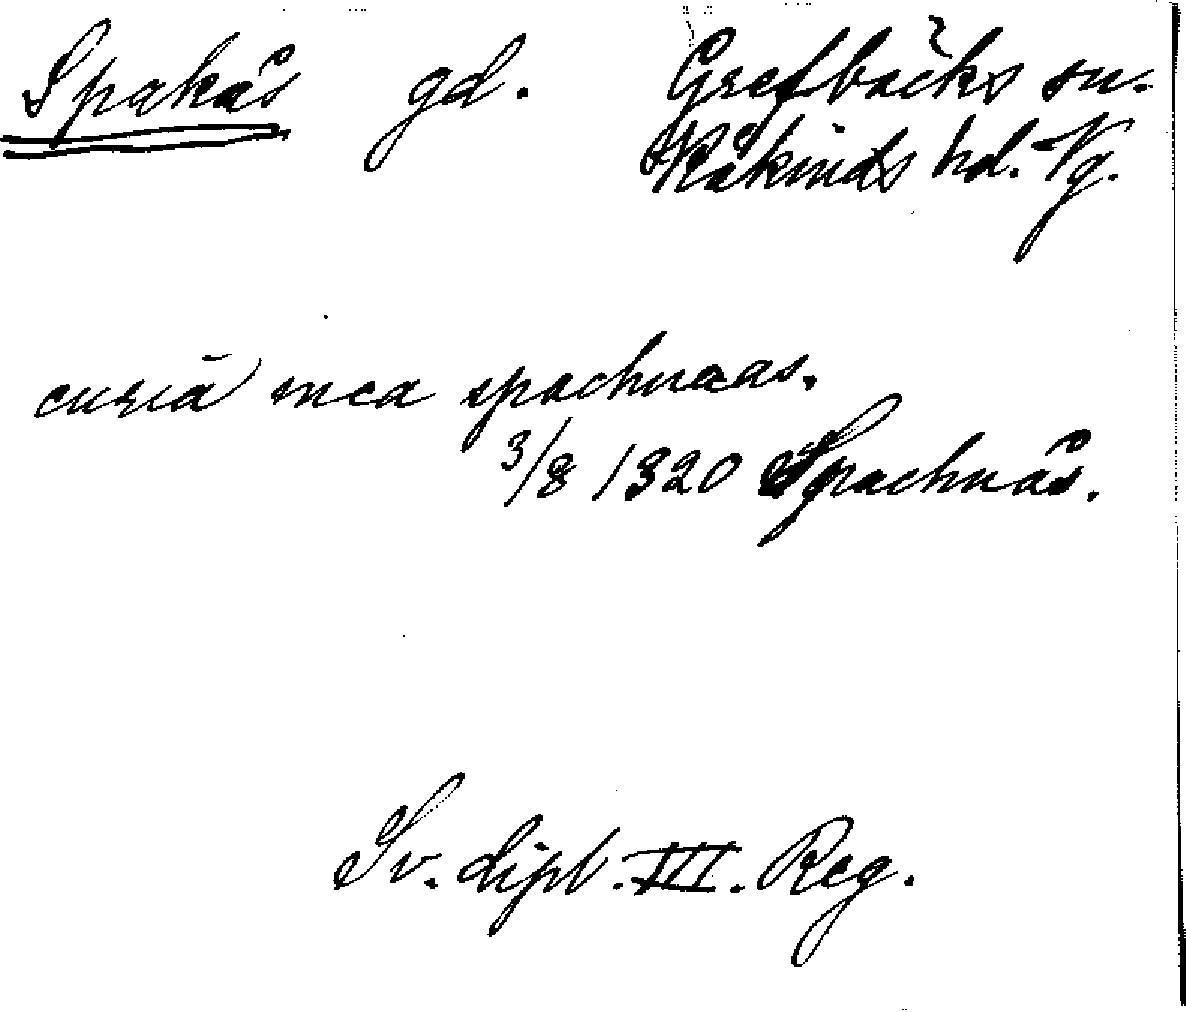 Spakås gd. Grefbäcks sn.
Kåkinds hd. Vg.
curiā mea spachnaas.
3/8 1320 Spachnås.
Sv. dipl. III. Reg.